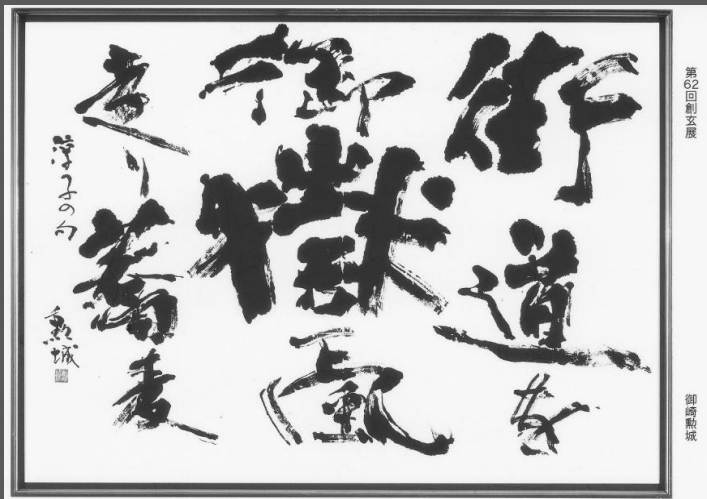 第62回創玄展
御崎勲城
街道を
御嶽颪
走り蕎麦
淳子の句
勲城